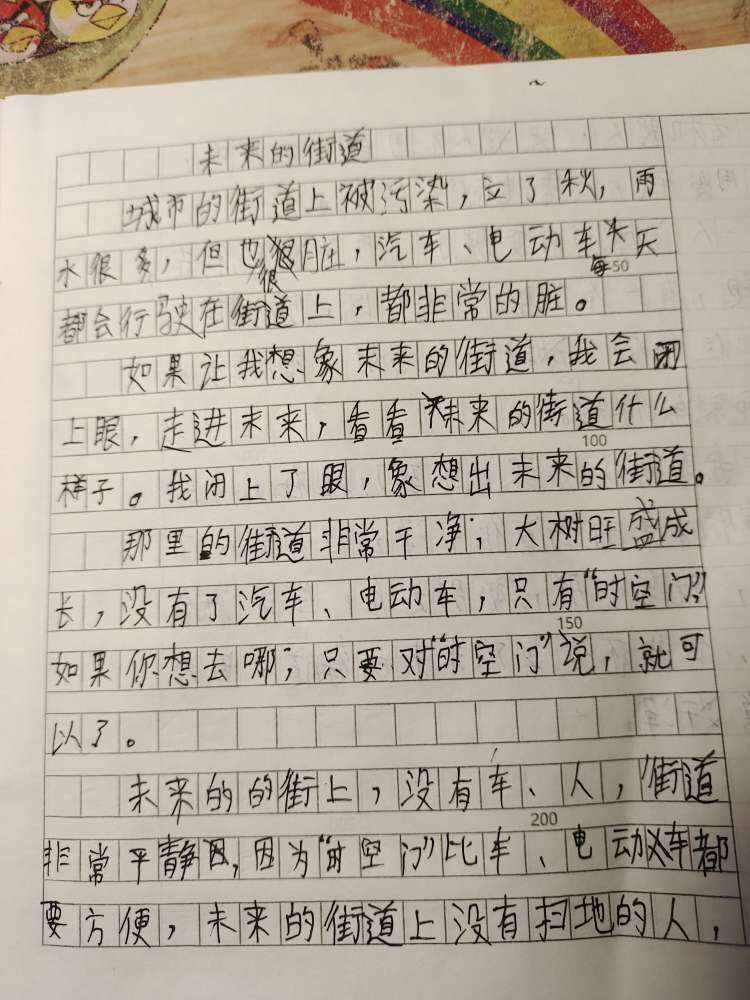 未来的街道
城市的街道上被污染，立了秋，雨
水很多，但也很脏，汽车、电动车每天
都会行驶在街道上，都非常的脏。
50
如果让我想象未来的街道，我会闭
上眼，走进未来，看看未来的街道什么
样子。我闭上了眼，象想出未来的街道。
100
那里的街道非常干净；大树旺盛成
长，没有了汽车、电动车，只有“时空门”，
如果你想去哪；只要对“时空门”说，就可
150
以了。
未来的的街上，没有车、人，街道
非常平静，因为“时空门”比车、电动车都
200
要方便，未来的街道上没有扫地的人，